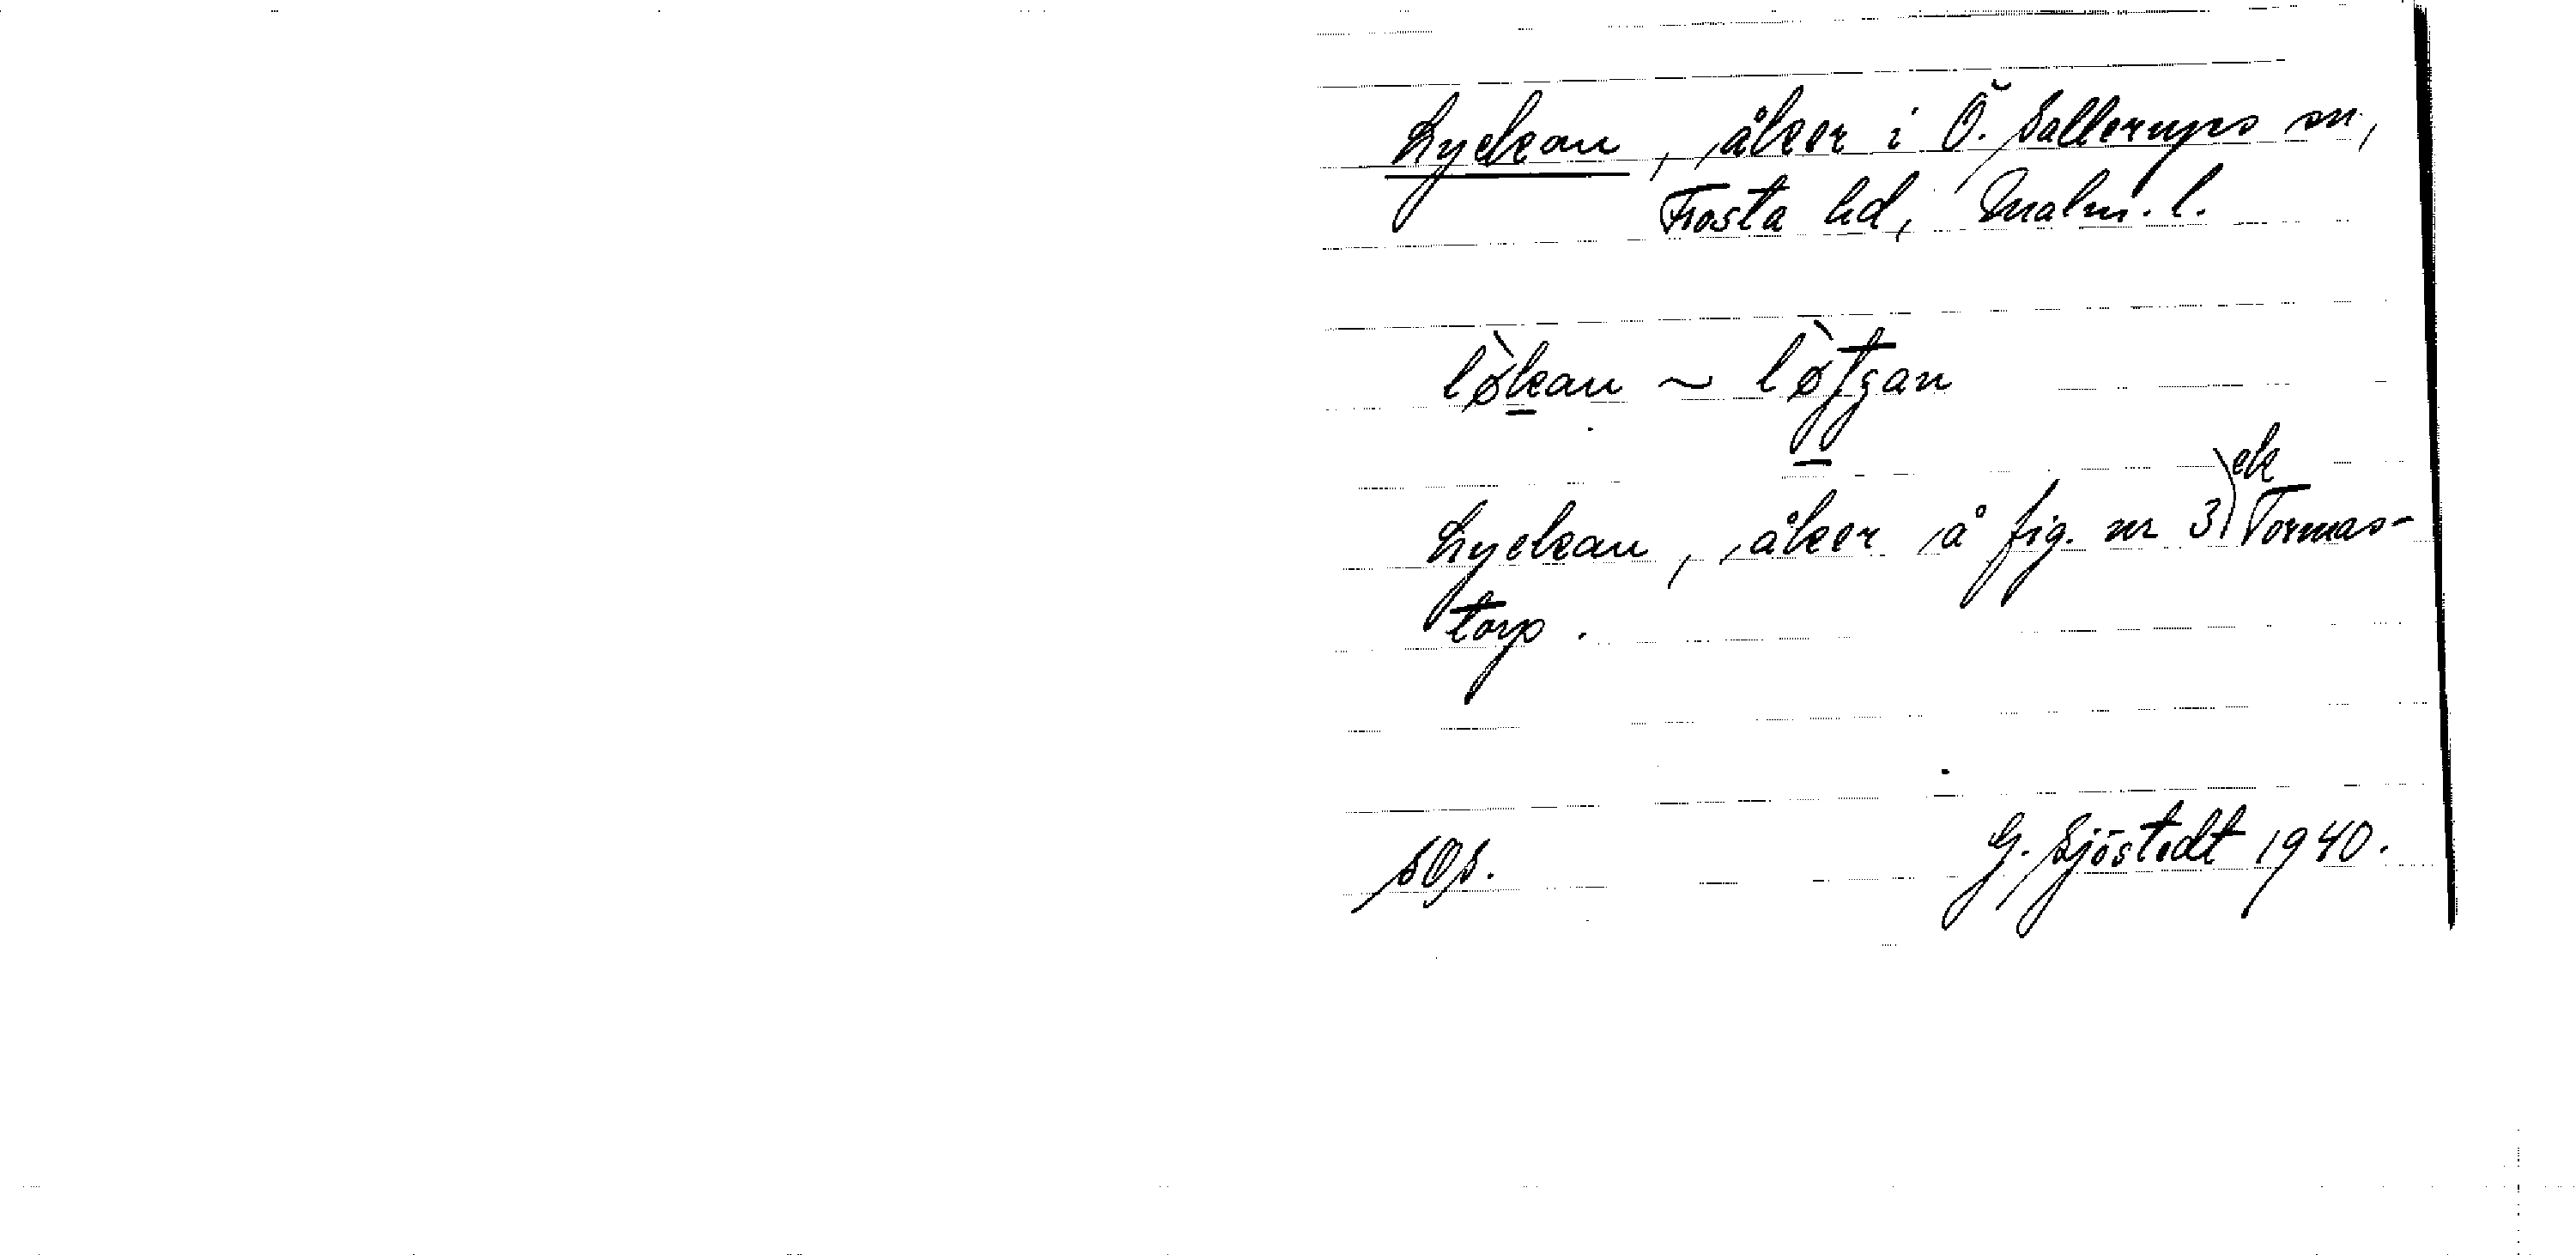 Lyckan, åker i Ö. Sallerups sn,
Frosta hd, Malm. l.
lø̀kan ~ lø̀tʃan
Lyckan, åker å fig. nr 3) ek Tormas-
torp.
SOS.
G. Sjöstedt 1940.